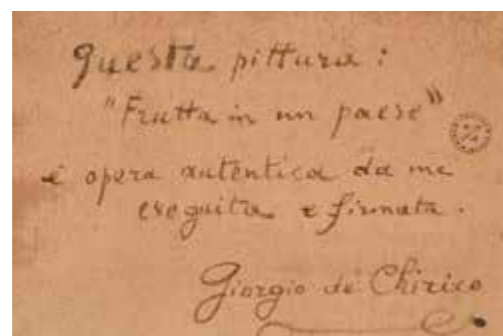 Questa pittura:
"Frutta in un paese"
è opera autentica da me
eseguita e firmata.
Giorgio de Chirico